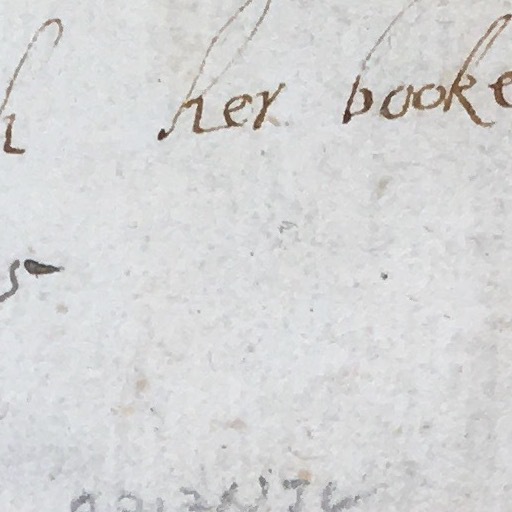 h her booke
5